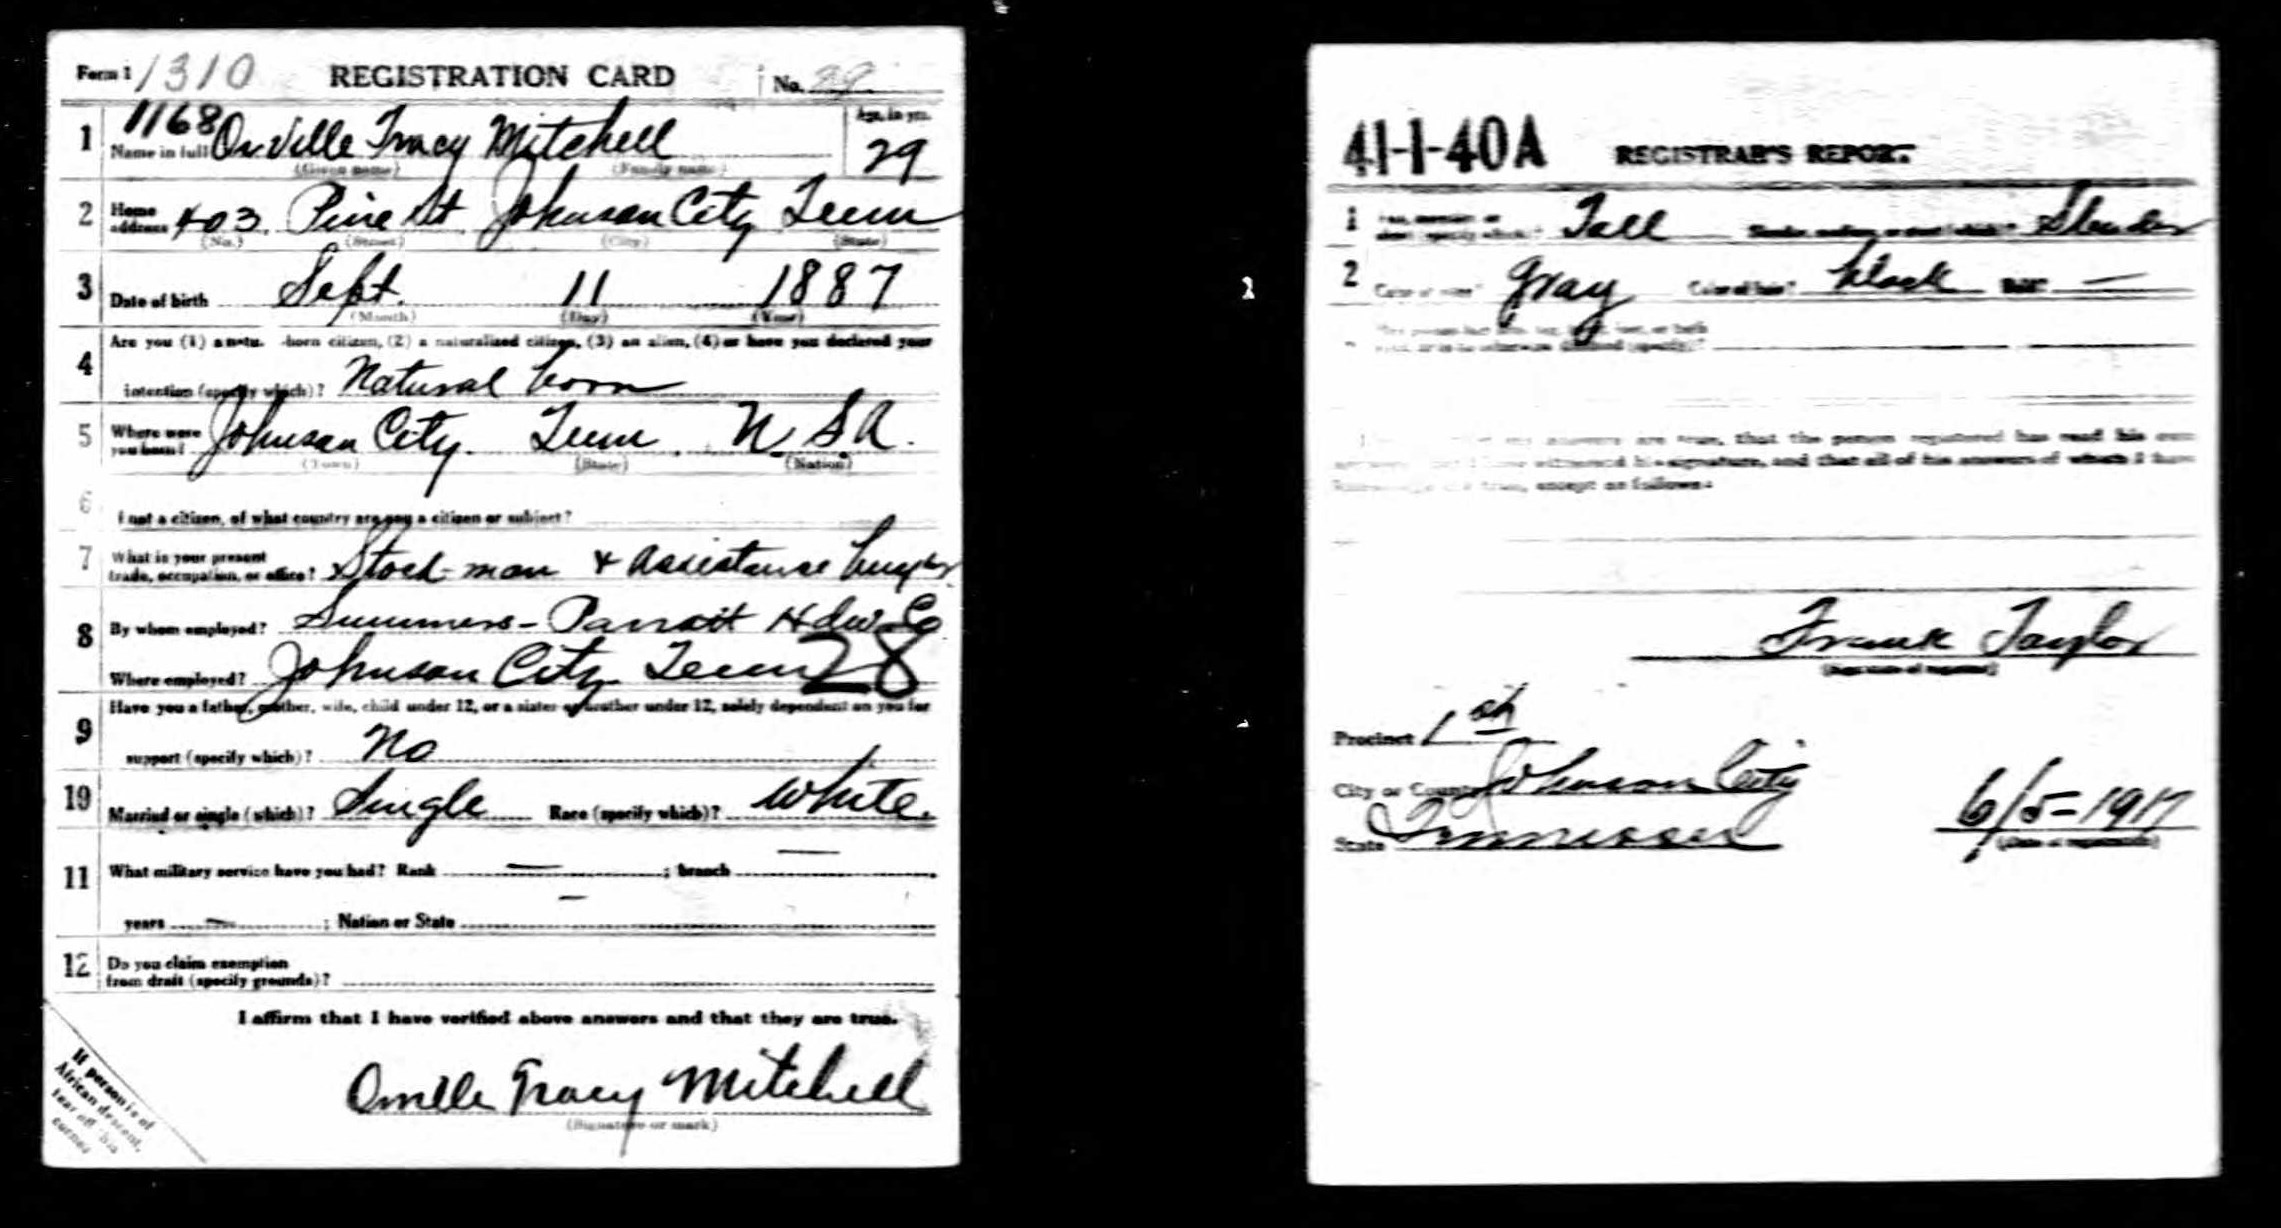 Form 1 1310 REGISTRATION CARD No.
1168
1 Name in full Orville Tracy Mitchell Age, in yrs. 29
(Given name) (Family name)
2 Home address 403 Pine St Johnson City Tenn
(No.) (Street) (City) (State)
3 Date of birth Sept. 11 1887
(Month) (Day) (Year)
Are you (1) a natu -born citizen, (2) a naturalized citizen, (3) an alien, (4) or have you declared your
4 intention (specify which)? Natural born
5 Where were you born? Johnson City. Tenn. U.S.A.
(Town) (State) (Nation)
6 I not a citizen, of what country are you a citizen or subject?
7 What is your present trade, occupation, or office? Stock-man & Assistance buyer
8 By whom employed? Summers-Parrott Hdw Co
Where employed? Johnson City Tenn 28
Have you a father, mother, wife, child under 12, or a sister or brother under 12, solely dependent on you for
9 support (specify which)? No
10 Married or single (which)? Single Race (specify which)? White.
11 What military service have you had? Rank — ; branch —
years — ; Nation or State —
12 Do you claim exemption
from draft (specify grounds)?
I affirm that I have verified above answers and that they are true.
Orville Tracy Mitchell
(Signature or mark)
If person is of
African descent,
tear off this
corner
41-1-40A REGISTRAR'S REPORT
1 Tall Slender
2 Color of eyes? Gray Color of hair? black Bald? —
my answers are true, that the person registered has read his own
witnessed his signature, and that all of his answers of which I have
true, except as follows:
Frank Taylor
(Signature of registrar)
Precinct 1st
City or County Johnson City
State Tennessee 6/5-1917
(Date of registration)